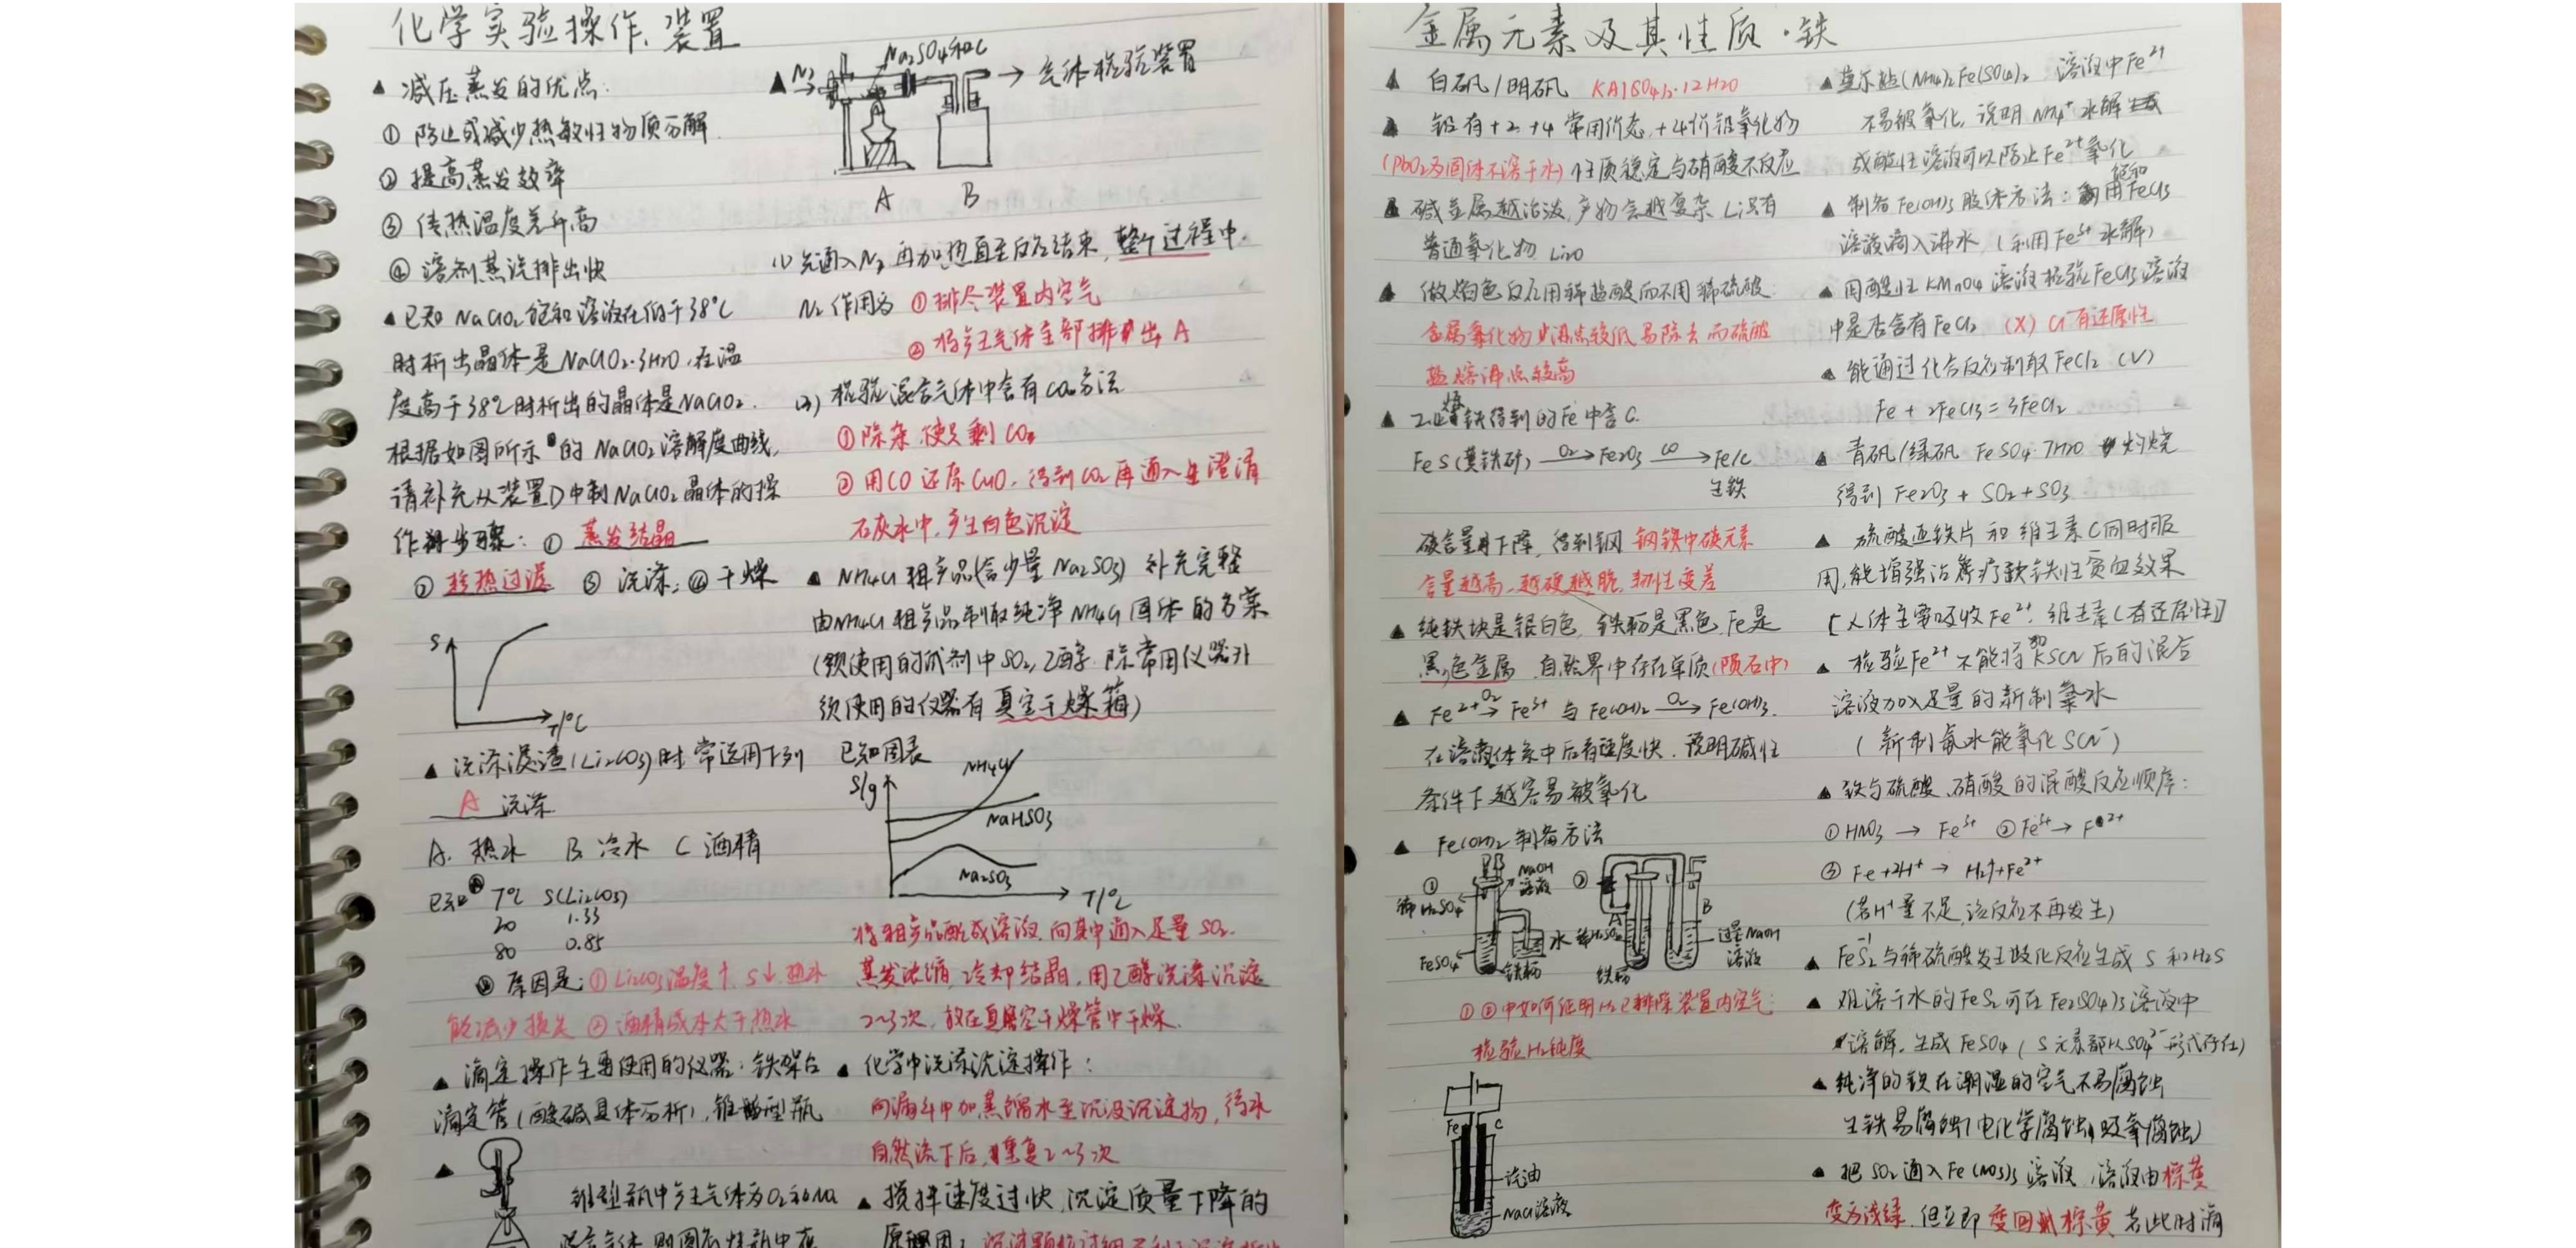 化学实验操作、装置
▲ 减压蒸发的优点:
① 防止或减少热敏性物质分解
② 提高蒸发效率
③ 传热温度差升高
④ 溶剂蒸汽排出快
▲已知 NaClO2饱和溶液在低于38℃
时析出晶体是NaClO2·3H2O,在温
度高于38℃时析出的晶体是NaClO2.
根据如图所示的 NaClO2溶解度曲线,
请补充从装置D中制NaClO2晶体的操
作步骤: ① 蒸发结晶
② 趁热过滤 ③ 洗涤; ④ 干燥
S
T/℃
▲ 洗涤滤渣(Li2CO3)时常选用下列
A 洗涤
A. 热水 B 冷水 C 酒精
已知 T℃ S(Li2CO3)
20 1.33
80 0.85
原因是: ① Li2CO3温度↑ S↓ 热水
能减少损失 ② 酒精成本大于热水
▲ 滴定操作主要使用的仪器: 铁架台
滴定管(酸碱具体分析), 锥型瓶
▲
锥型瓶中产生气体为O2和
▲ N2
Na2SO4和C
→ 气体检验装置
A B
(1) 先通入N2 再加热直至反应结束, 整个过程中
N2 作用为 ① 排尽装置内空气
② 将产生气体全部排出 A
(2) 检验混合气体中含有CO方法
① 除杂 使只剩 CO
② 用CO 还原CuO, 得到CO2 再通入澄清
石灰水中, 产生白色沉淀
▲ NH4Cl 粗产品(含少量 Na2SO3) 补充完整
由NH4Cl 粗产品制取纯净NH4Cl 固体的方案
(须使用的试剂中SO2, 乙醇. 除常用仪器外
须使用的仪器有 真空干燥箱)
已知图表
S/g
NH4Cl
NaHSO3
Na2SO3
T/℃
将粗产品配成溶液, 向其中通入足量 SO2.
蒸发浓缩, 冷却结晶, 用乙醇洗涤沉淀
2~3次, 放在真空干燥管中干燥.
▲ 化学中洗涤沉淀操作:
向漏斗中加蒸馏水至沉没沉淀物, 待水
自然流下后, 重复2~3次
▲ 搅拌速度过快, 沉淀质量下降的
金属元素及其性质·铁
▲ 白矾/明矾 KAl(SO4)2·12H2O
▲ 铅有+2 +4 常用价态, +4价铅氧化物
(PbO2为固体不溶于水) 性质稳定与硝酸不反应
▲ 碱金属越活泼, 产物会越复杂 Li只有
普通氧化物 Li2O
▲ 做焰色反应用稀盐酸而不用稀硫酸:
金属氯化物沸点较低 易除去 而硫酸
盐熔沸点较高
▲ 工业炼铁得到的Fe中含C.
FeS(黄铁矿) O2→ Fe2O3 CO→ Fe/C
生铁
碳含量下降, 得到钢 钢铁中碳元素
含量越高, 越硬越脆, 韧性变差
▲ 纯铁块是银白色, 铁粉是黑色, Fe是
黑色金属 自然界中存在单质(陨石中)
▲ Fe2+ O2→ Fe3+ 与 Fe(OH)2 O2→ Fe(OH)3.
在溶液体系中后者速度快. 说明碱性
条件下越容易被氧化
▲ Fe(OH)2 制备方法
① NaOH溶液
稀H2SO4
FeSO4
铁粉
水
② A B
稀H2SO4
铁粉
过量NaOH溶液
①②中如何证明H2已排除装置内空气:
检验H2纯度
Fe C
汽油
NaCl溶液
▲莫尔盐(NH4)2Fe(SO4)2 溶液中Fe2+
不易被氧化, 说明 NH4+ 水解生成
或酸性溶液可以防止Fe2+氧化
▲ 制备 Fe(OH)3 胶体方法: 用饱和FeCl3
溶液滴入沸水 (利用Fe3+水解)
▲ 用酸性 KMnO4 溶液检验FeCl3溶液
中是否含有FeCl2 (X) Cl-有还原性
▲ 能通过化合反应制取FeCl2 (V)
Fe + 2FeCl3 = 3FeCl2
▲ 青矾/绿矾 FeSO4·7H2O 灼烧
得到 Fe2O3 + SO2 + SO3
▲ 硫酸亚铁片和维生素C同时服
用,能增强治疗缺铁性贫血效果
[人体主要吸收Fe2+, 维生素C有还原性]
▲ 检验Fe2+ 不能将加KSCN 后的混合
溶液加入足量的新制氯水
(新制氯水能氧化SCN-)
▲ 铁与硫酸、硝酸的混酸反应顺序:
① HNO3 → Fe3+ ② Fe3+→ Fe2+
③ Fe+2H+ → H2↑+Fe2+
(若H+量不足, 该反应不再发生)
▲ FeS2与稀硫酸发生歧化反应生成 S 和H2S
▲ 难溶于水的FeS2可在Fe2(SO4)3溶液中
溶解, 生成 FeSO4 (S元素都以SO42-形式存在)
▲ 纯净的铁在潮湿的空气不易腐蚀
生铁易腐蚀(电化学腐蚀, 吸氧腐蚀)
▲ 把 SO2通入Fe(NO3)3 溶液, 溶液由棕黄
变为浅绿, 但立即变回棕黄 若此时滴